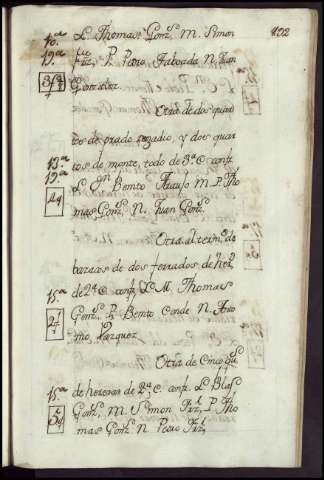 192
18.ª L. Thomas Gonz.ˢ M. Simon
19.ª P. Pedro Taboada N. Juan
Gonzalez.
Otra de dos quar
tos de prado regadio, y dos quar
18.ª tos de monte, todo de 3.ª C. conf.
19.ª L. C. Benito Araujo M. P. Tho
2q mas Gonz.ˢ N. Juan Gonz.ˢ
Otra al term.º de
de dos ferrados de
15.ª de 2.ª C. conf. L. M. Thomas
Gonz.ˢ P. Benito Conde N. Anto
nio Vazquez
Otra de Cinco
15.ª de heredad de 2.ª C. conf. L. Blas
5q Gonz.ˢ M. Simon P. Tho
mas Gonz.ˢ N. Pedro